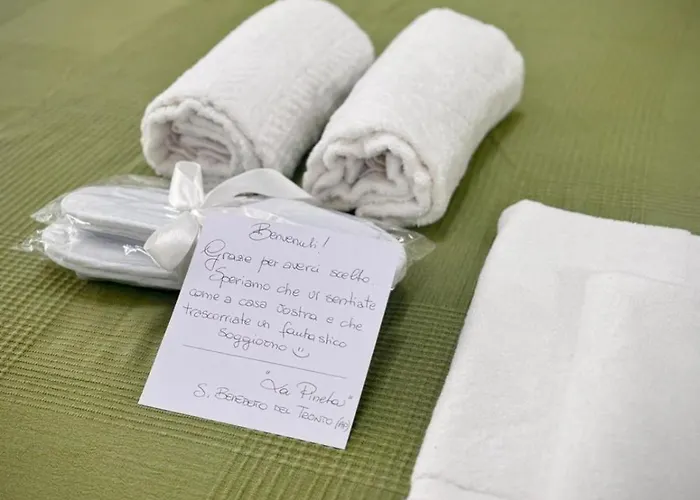 Benvenuti!
Grazie per averci scelto.
Speriamo che vi sentiate
come a casa vostra e che
trascorriate un fantastico
soggiorno
"La Pineta"
S. BENEDETTO DEL TRONTO (AP)